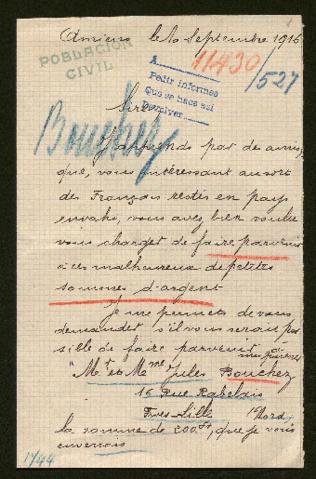 Amiens le 10 Septembre 1916
POBLACION
CIVIL
11430
/527
A
Pedir informes
Que se hace así
Sire
Bouchez
J'apprends par des amis,
que, vous intéressant au sort
des Français restés en pays
envahi, vous avez bien voulu
vous charger de faire parvenir
à ces malheureux de petites
sommes d'argent
Je me permets de vous
demander s'il vous serait pos
sible de faire parvenir
Mr et Mme Jules Bouchez
15 Rue Rabelais
Fives-Lille Nord
la somme de 200frs, que je vous
enverrais
1744